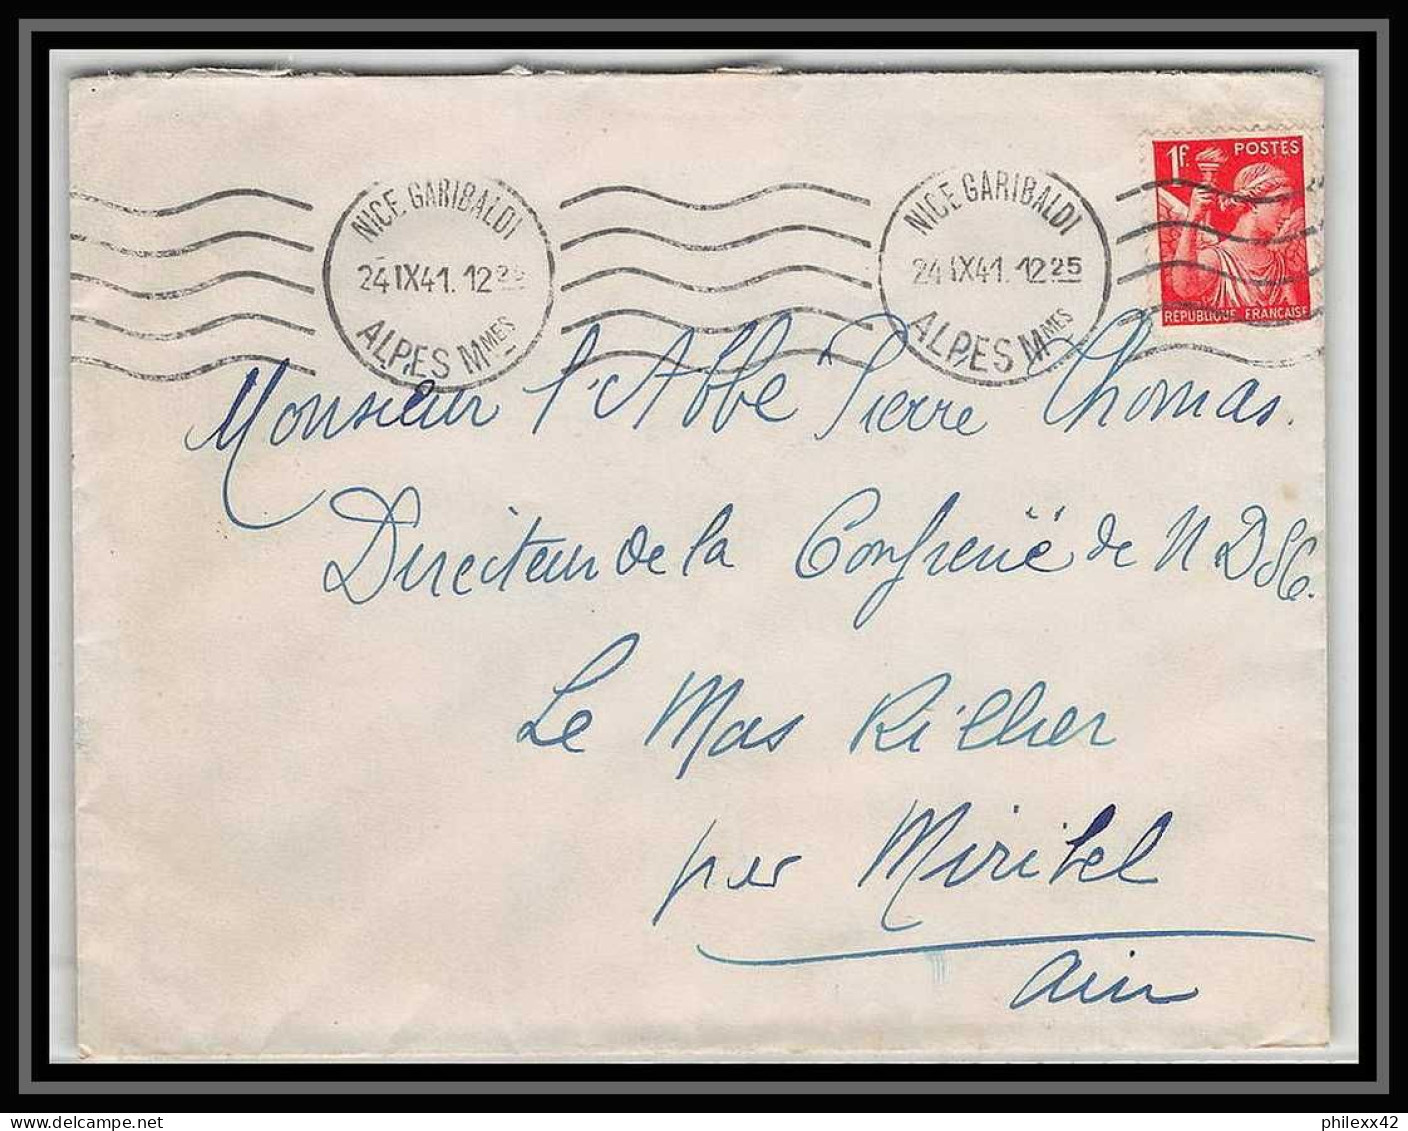 NICE GARIBALDI
24 IX 41. 12
ALPES MMES
NICE GARIBALDI
24 IX 41. 12 25
ALPES MMES
1F. POSTES
REPUBLIQUE FRANÇAISE
Monsieur l'Abbé Pierre Thomas.
Directeur de la Confrerië de N D
Le Mas Rillier
par Miribel
Ain
philexx42